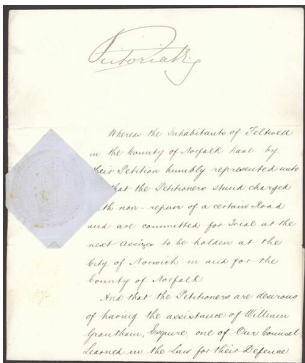 Victoria R
Whereas the Inhabitants of Feltwell
in the County of Norfolk have by
their Petition humbly represented unto
that the Petitioners stand charged
with non-repair of a certain Road
and are committed for Trial at the
next Assizes to be holden at the
City of Norwich in and for the
County of Norfolk
And that the Petitioners are desirous
of having the assistance of William
Grantham, Esquire, one of Our Counsel
Learned in the Law for their Defence